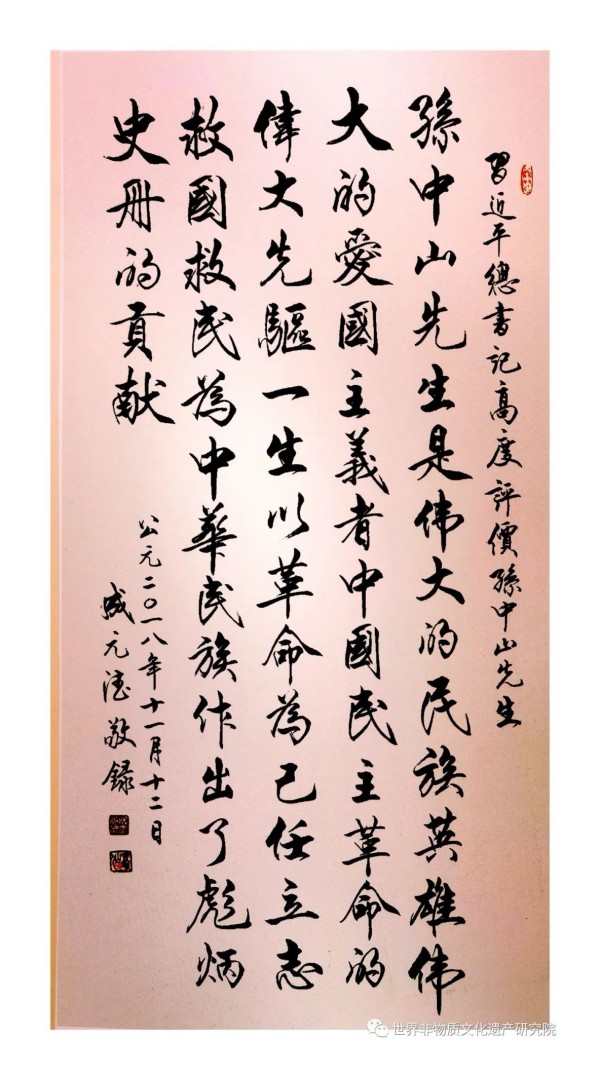 習近平總書記高度評價孫中山先生
孫中山先生是伟大的民族英雄伟
大的愛國主義者中國民主革命的
偉大先驅一生以革命為己任立志
救國救民為中華民族作出了彪炳
史册的貢献
公元二〇一八年十一月十二日
成元德敬録
世界非物质文化遗产研究院